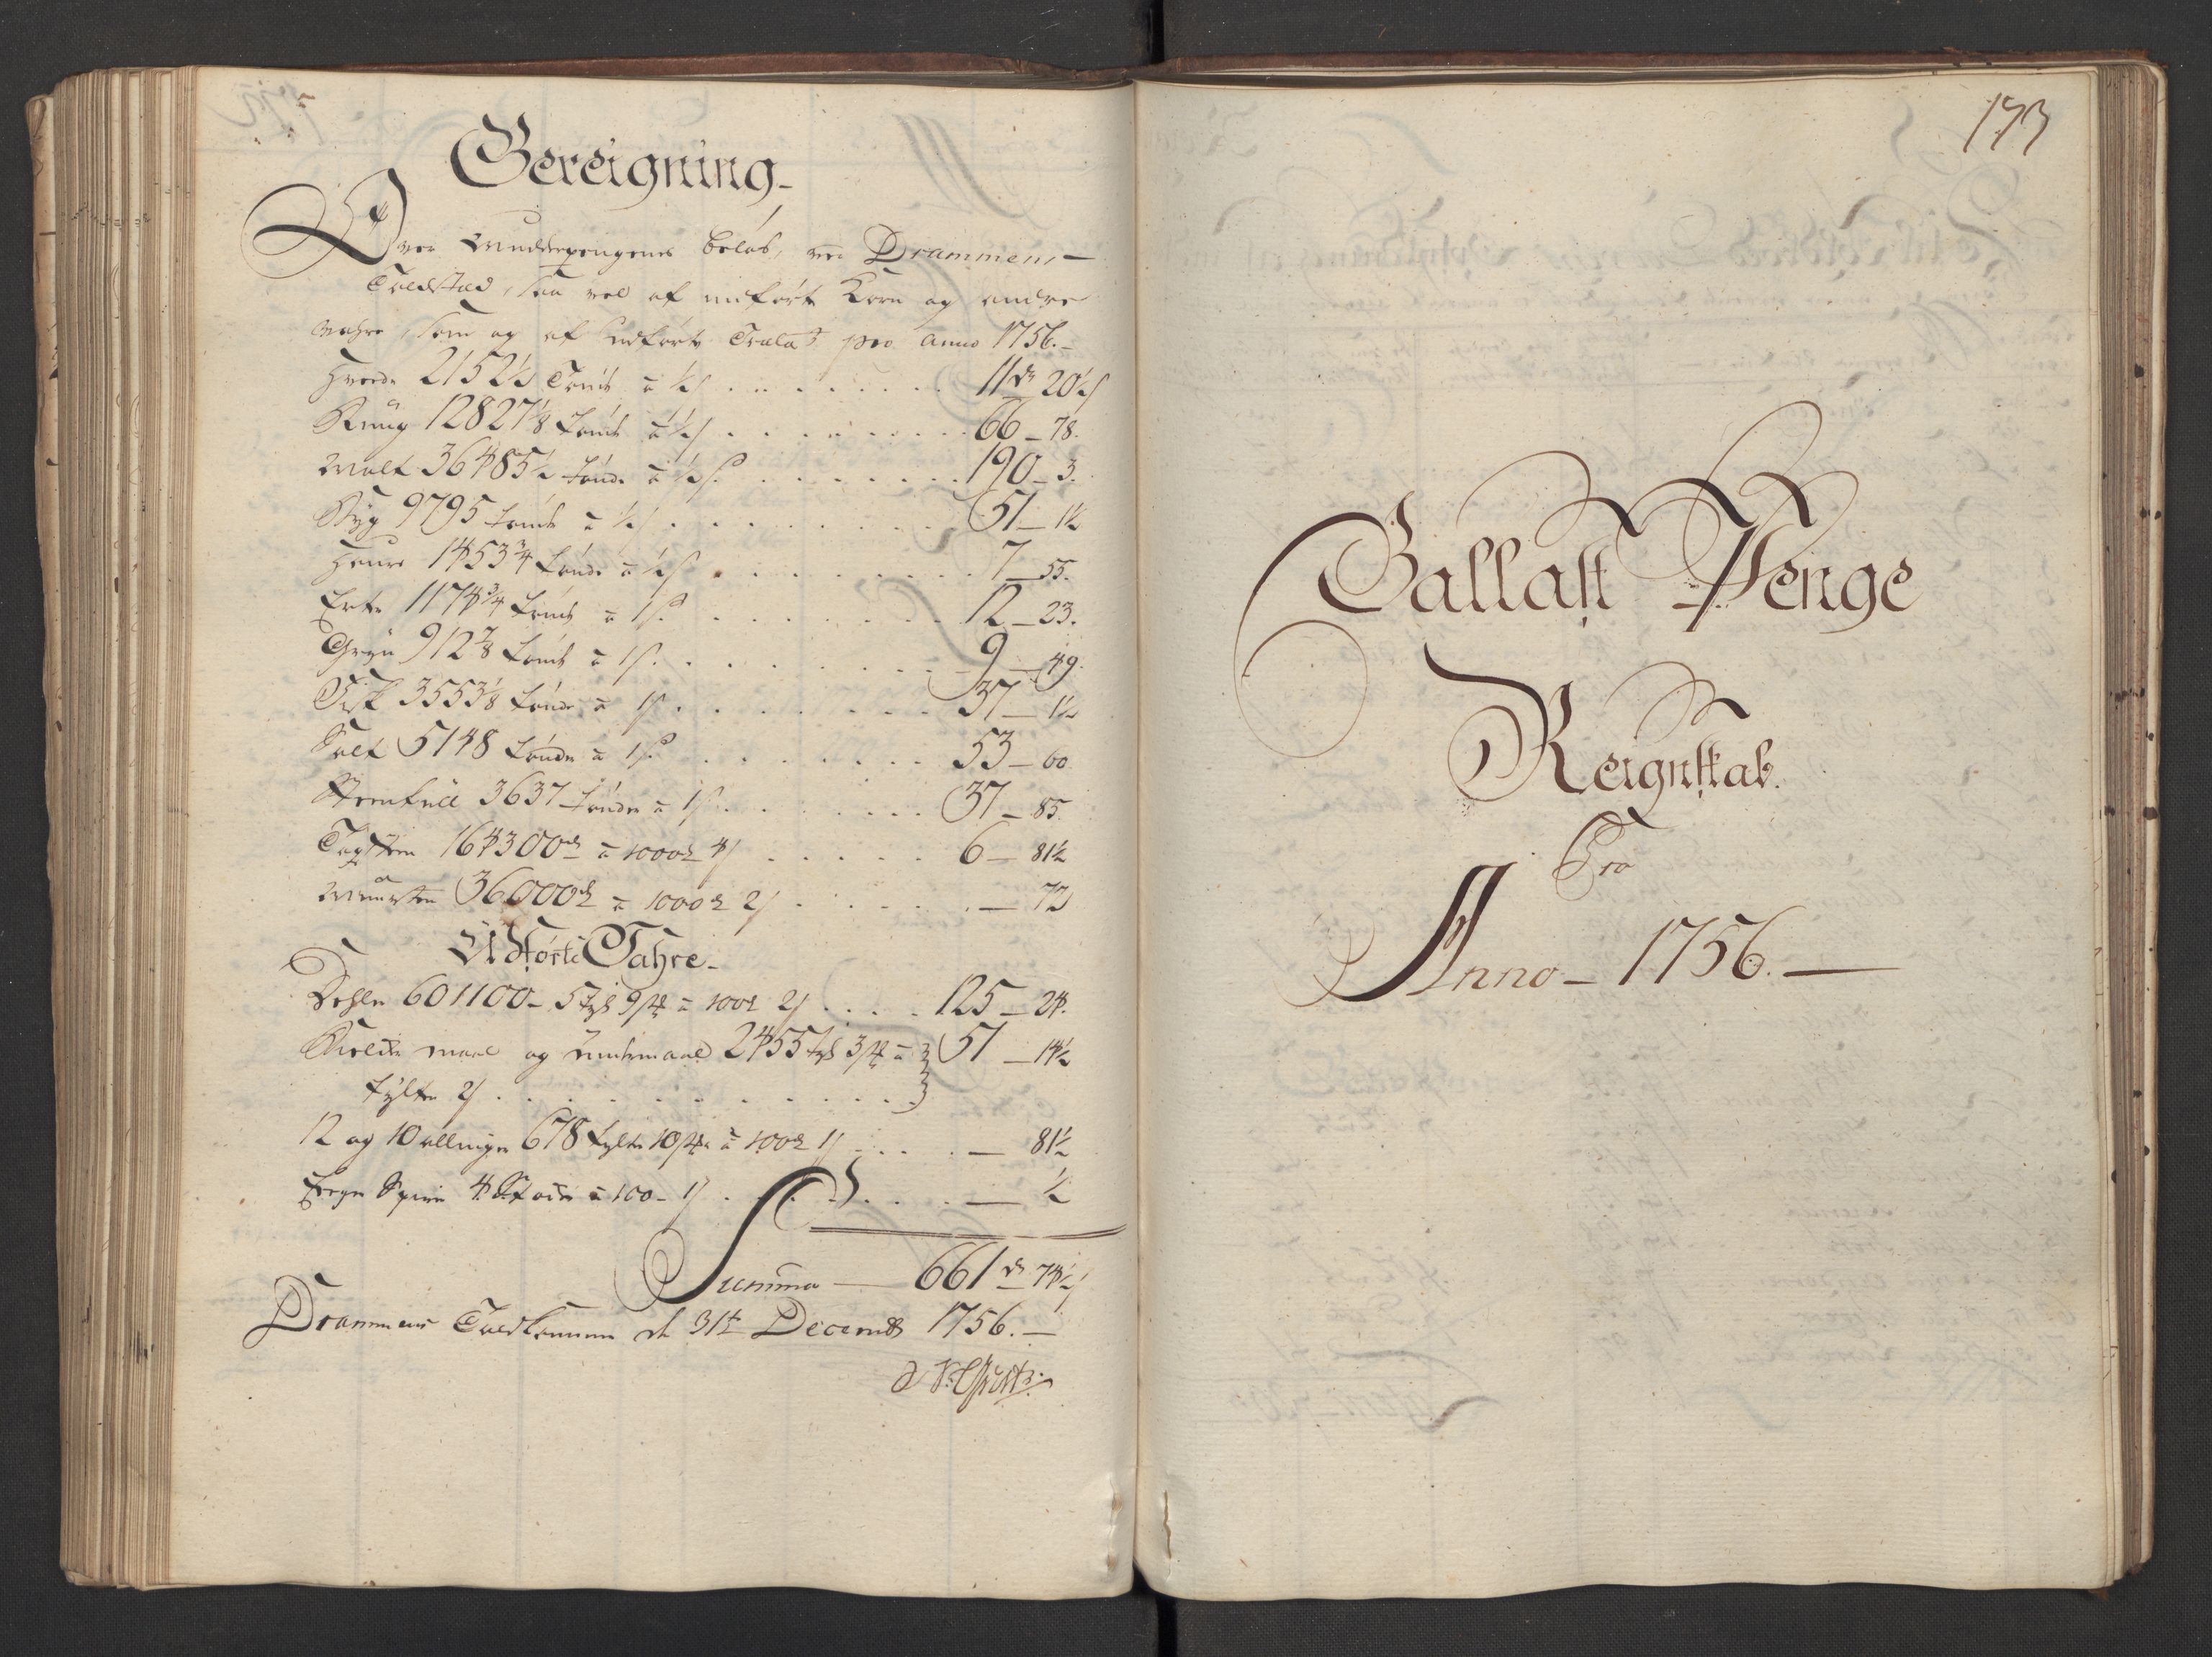 Bereigning
Over Mudderpengenes beløb, ved Drammens
Toldstæd, saa vel af indførte Korn og andre
Wahre, som og af udførte Trælast pro anno 1756.
Hvede 2152½ Tønde à ½ s 11 rd 20½ s
Rug 12827⅛ Tønde à ½ s 66 – 78.
Malt 36485½ Tønde à ½ s. 190 – 3.
Byg 9795 Tønde à ½ s 51 – 1½
Haure 1453¾ Tønde à ½ s 7 – 55.
Erter 1174¾ Tønde à 1 s. 12 – 23.
Gryn 912⅞ Tønde à 1 s. 9 – 49.
Fisk 3553⅛ Tønde à 1 s. 37 – 1½
Salt 5148 Tønde à 1 s. 53 – 60
Steenkull 3637 Tønder à 1 s. 37 – 85.
Tagsteen 164300 à 1000 4 s 6 – 81½
Muursteen 36000 à 1000 2 s – 72
Udførte Wahre
Dehler 601100 – 5 tylt 9 st à 100 2 s 125 – 24.
maal og undermaal 2455 tylt 3 st à 51 – 14½
tylten 2 s
12 og 10 allninger 678 tylter 10 st à 100 1 s – 81½
Spirer 4 à 100 – 1 s – ½
Summa – 661 rd 74½ s
Drammens Toldkammer d 31te Decemb 1756. –
173
Ballast Penge
Reignskab.
Pro
Anno – 1756. –